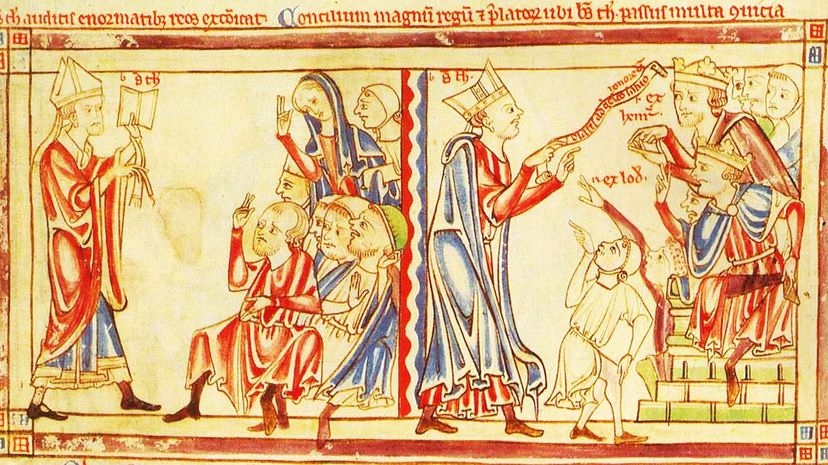 th auditis enormatibꝫ reos exco̅icat· Conciliu̅ magnu̅ regu̅ ⁊ p̅latoꝝ ubi bs̅ th̅· passus multa ꝯuicia
b s̅ th̅
b s̅ th̅·
r ex
hem͛
r ex lod͛·